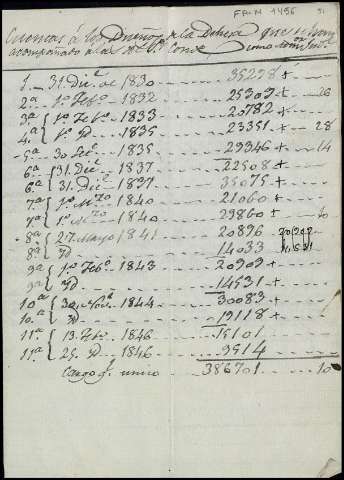 FRMN 1456
Cuentas a los Dueños de la Dehesa que se han
acompañado a la Sra. Condesa
1.. 31. Dice. de 1830 35278 +
2ª 1º Febº. 1832 25309 + 26
3ª 1º Febº. 1833 20782 +
4ª 1º Yd 1835 23351 + 28
5ª 30 Setº. 1835 29346 + 14
6ª 31. Dice. 1837 22508 +
6ª 31. Dice. 1837 35075 +
7ª 1º Mzo 1840 21060 +
7ª 1º Mzo 1840 29860 + 10
8ª 27. Mayo 1841 20896
8ª Yd 14033
9ª 1º Febº. 1843 20909 +
9ª Yd 14531 +
10ª 30 Novre. 1844 30083 +
10ª Yd 19118 +
11ª 13. Febº. 1846 15101
11ª 25. Yd 1846 9514
Cargo gl. unico 386701 10